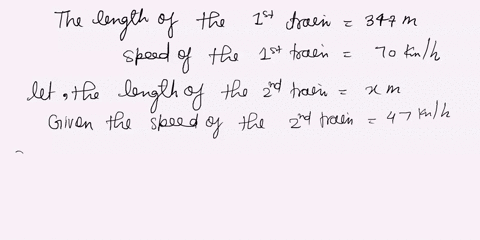 The length of the 1st train = 344 m
speed of the 1st train = 70 Km/h
let, the length of the 2nd train = x m
Given the speed of the 2nd train = 47 Km/h